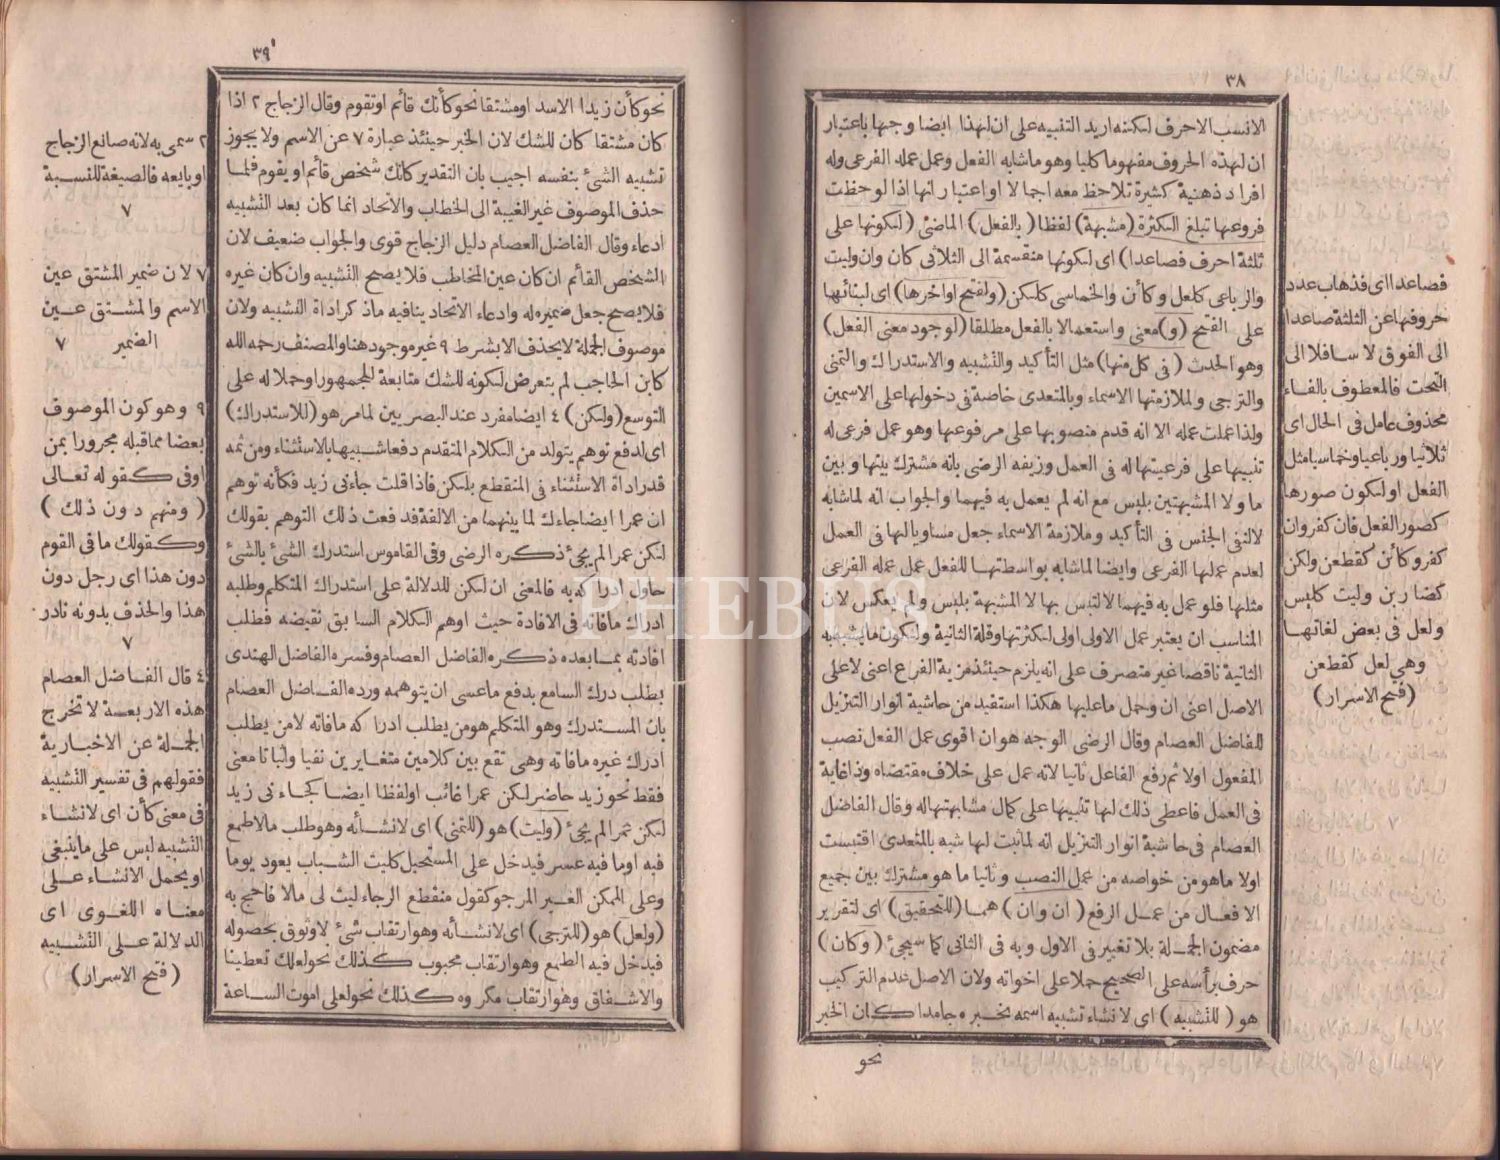 ٣٨
الانسب الاحرف لكنه اريد التنبيه على ان لهذا ايضا وجها باعتبار
ان لهذه الحروف مفهوما كليا وهو ماشابه الفعل وعمل عمله الفرعى وله
افراد ذهنية كثيرة تلاحظ معه اجمالا او اعتبارا انها اذا لوحظت
فروعها تبلغ الكثرة (مشبهة) لفظا (بالفعل) الماضى (لكونها على
ثلثة احرف فصاعدا) اى لكونها منقسمة الى الثلاثى كان وان وليت
والرباعى كلعل وكأن والخماسى كلكن (ولفتح اواخرها) اى لبنائها
على الفتح (و) معنى واستعمالا بالفعل مطلقا (لوجود معنى الفعل)
وهو الحدث (فى كل منها) مثل التأكيد والتشبيه والاستدراك والتمنى
والترجى ولملازمتها الاسماء وبالمتعدى خاصة فى دخولها على الاسمين
ولذا عملت عمله الا انه قدم منصوبها على مرفوعها وهو عمل فرعى له
تنبيها على فرعيتها له فى العمل وزيفه الرضى بانه مشترك بينها وبين
ما ولا المشبهتين بليس مع انه لم يعمل به فيهما والجواب انه لماشابه
لالنفى الجنس فى التأكيد وملازمة الاسماء جعل مساويا لها فى العمل
لعدم عملها الفرعى وايضا لماشابه بواسطتها للفعل عمل عمله الفرعى
مثلها فلو عمل به فيهما لالتبس بها لا المشبهة بليس ولم يعكس لان
المناسب ان يعتبر عمل الاولى اولى لكثرتها وقلة الثانية ولكون مايشبه به
الثانية ناقصا غير متصرف على انه يلزم حينئذ مزية الفرع اعنى لا على
الاصل اعنى ان وحمل ماعليها هكذا استفيد من حاشية انوار التنزيل
للفاضل العصام وقال الرضى الوجه هو ان اقوى عمل الفعل نصب
المفعول اولا ثم رفع الفاعل ثانيا لانه عمل على خلاف مقتضاه وذا غاية
فى العمل فاعطى ذلك لها تنبيها على كمال مشابهتها له وقال الفاضل
العصام فى حاشية انوار التنزيل انه لما ثبت لها شبه بالمتعدى اقتبست
اولا ماهو من خواصه من عمل النصب وثانيا ما هو مشترك بين جميع
الافعال من عمل الرفع (ان وان) هما (للتحقيق) اى لتقرير
مضمون الجملة بلا تغيير فى الاول وبه فى الثانى كما سيجئ (وكان)
حرف برأسه على الصحيح حملا على اخواته ولان الاصل عدم التركيب
هو (للتشبيه) اى لانشاء تشبيه اسمه بخبره جامدا كان الخبر
نحو
فصاعدا اى فذهاب عدد
حروفها عن الثلثة صاعدا
الى الفوق لا سافلا الى
التحت فالمعطوف بالفاء
محذوف عامل فى الحال اى
ثلاثيا ورباعيا وخماسيا مثل
الفعل او لكون صورها
كصور الفعل فان كفر وان
كفر وكأن كقطعن ولكن
كضاربن وليت كليس
ولعل فى بعض لغاتها
وهي لعل كقطعن
(فتح الاسرار)
٣٩
نحو كأن زيدا الاسد او مشتقا نحو كأنك قائم او تقوم وقال الزجاج ٢ اذا
كان مشتقا كان للشك لان الخبر حينئذ عبارة ٧ عن الاسم ولا يجوز
تشبيه الشئ بنفسه اجيب بان التقدير كانك شخص قائم او يقوم فلما
حذف الموصوف غير الغيبة الى الخطاب والاتحاد انما كان بعد التشبيه
ادعاء وقال الفاضل العصام دليل الزجاج قوى والجواب ضعيف لان
الشخص القائم ان كان عين المخاطب فلا يصح التشبيه وان كان غيره
فلا يصح جعل ضميره له وادعاء الاتحاد ينافيه ماذكر اداة التشبيه ولان
موصوف الجملة لا يحذف الا بشرط ٩ غير موجود هنا والمصنف رحمه الله
كابن الحاجب لم يتعرض لكونه للشك متابعة للجمهور او حملا له على
التوسع (ولكن) ٤ ايضا مفرد عند البصريين لما مر هو (للاستدراك)
اى لدفع توهم يتولد من الكلام المتقدم دفعا شبيها بالاستثناء ومن ثمه
قدر اداة الاستثناء فى المنقطع بلكن فاذا قلت جاءنى زيد فكأنه توهم
ان عمرا ايضا جاءك لما بينهما من الالفة فدفعت ذلك التوهم بقولك
لكن عمرا لم يجئ ذكره الرضى وفى القاموس استدرك الشئ بالشئ
حاول ادراكه به فالمعنى ان لكن للدلالة على استدراك المتكلم وطلبه
ادراك مافاته فى الافادة حيث اوهم الكلام السابق نقيضه فطلب
افادته بما بعده ذكره الفاضل العصام وفسره الفاضل الهندى
بطلب درك السامع بدفع ماعسى ان يتوهمه ورده الفاضل العصام
بان المستدرك وهو المتكلم هو من يطلب ادراكه مافاته لا من يطلب
ادراك غيره مافاته وهى تقع بين كلامين متغايرين نفيا واثباتا معنى
فقط نحو زيد حاضر لكن عمرا غائب او لفظا ايضا كجاءنى زيد
لكن عمرا لم يجئ (وليت) هو (للتمنى) اى لانشائه وهو طلب مالا طمع
فيه او ما فيه عسر فيدخل على المستحيل كليت الشباب يعود يوما
وعلى الممكن الغير المرجو كقول منقطع الرجاء ليت لى مالا فاحج به
(ولعل) هو (للترجى) اى لانشائه وهو ارتقاب شئ لا وثوق بحصوله
فيدخل فيه الطمع وهو ارتقاب محبوب كذلك نحو لعلك تعطينا
والاشفاق وهو ارتقاب مكروه كذلك نحو لعلى اموت الساعة
٢ سمى به لانه صانع الزجاج
او بايعه فالصيغة للنسبة
٧
٧ لان ضمير المشتق عين
الاسم والمشتق عين
الضمير ٧
٩ وهو كون الموصوف
بعضا مما قبله مجرورا بمن
اوفى كقوله تعالى
(ومنهم دون ذلك)
وكقولك مافى القوم
دون هذا اى رجل دون
هذا والحذف بدونه نادر
٧
٤ قال الفاضل العصام
هذه الاربعة لا تخرج
الجملة عن الاخبارية
فقولهم فى تفسير التشبيه
فى معنى كأن اى لانشاء
التشبيه ليس على ماينبغى
او يحمل الانشاء على
معناه اللغوى اى
الدلالة على التشبيه
(فتح الاسرار)
PHEBUS